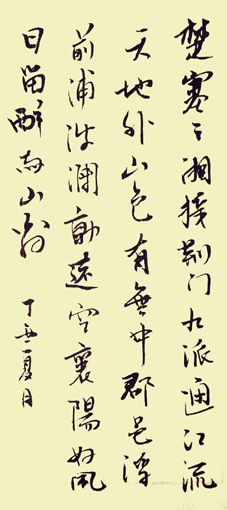 楚塞三湘接荆门九派通江流
天地外山色有無中郡邑浮
前浦波澜動遠空襄陽好風
日留醉与山翁
丁亥夏日